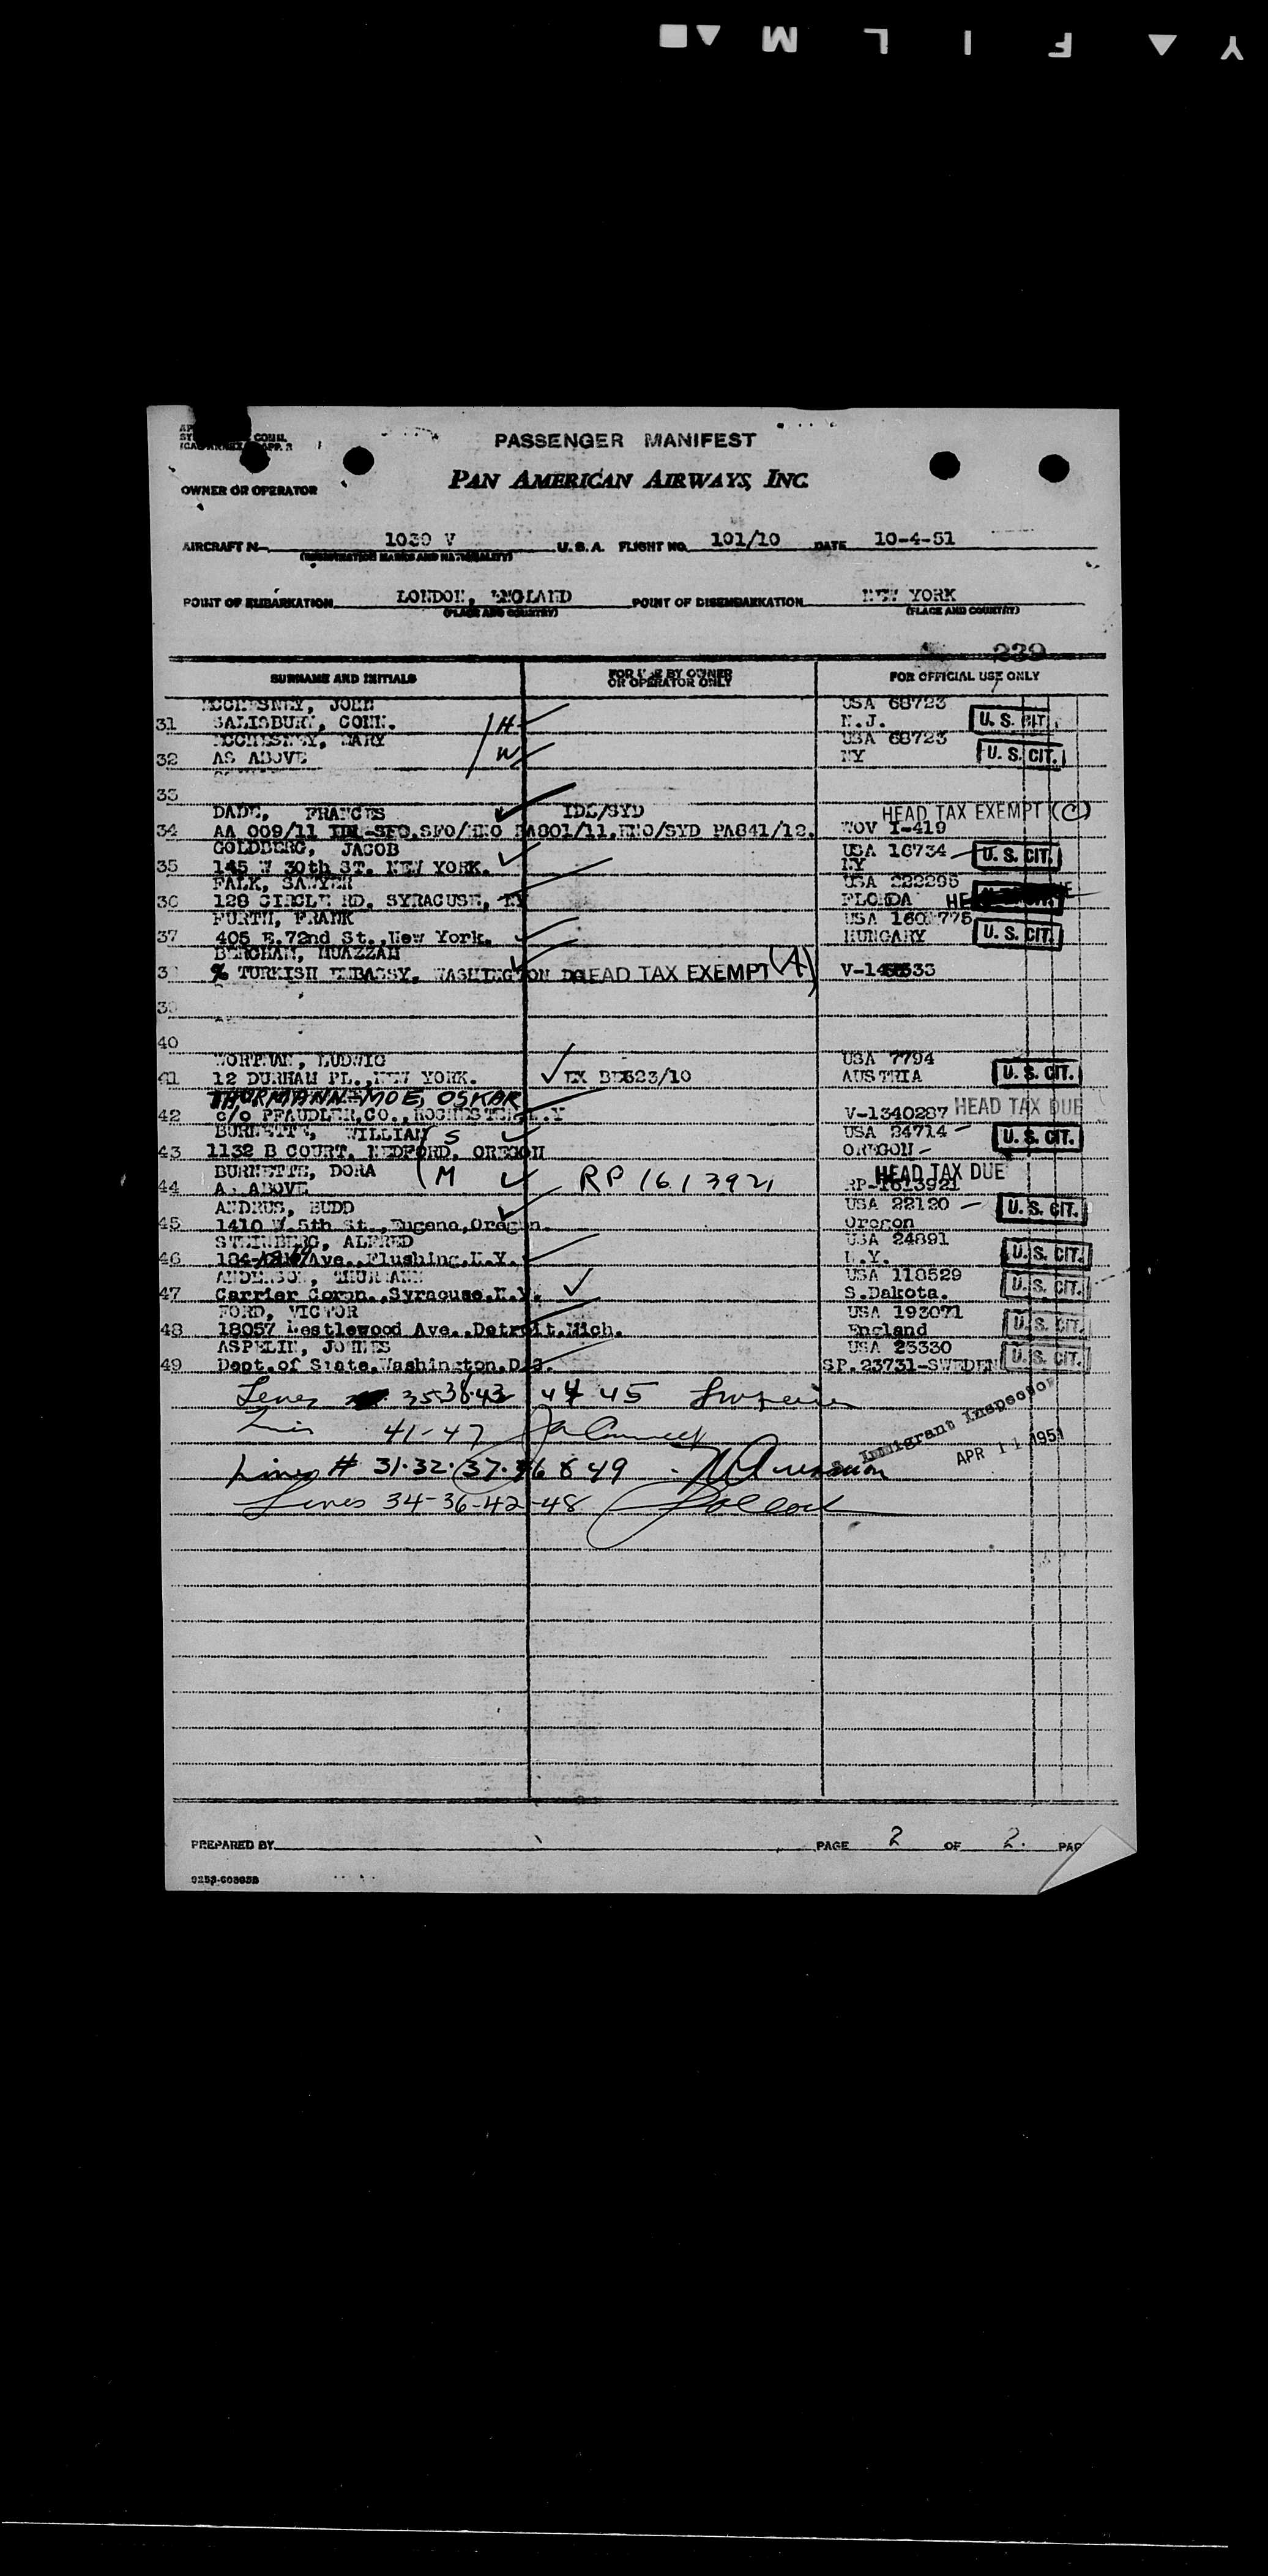 PASSENGER MANIFEST
PAN AMERICAN AIRWAYS, INC.
OWNER OR OPERATOR
AIRCRAFT N- 1030 V U.S.A. FLIGHT NO. 101/10 DATE 10-4-51
(REGISTRATION MARKS AND NATIONALITY)
POINT OF EMBARKATION LONDON, ENGLAND POINT OF DISEMBARKATION NEW YORK
(PLACE AND COUNTRY) (PLACE AND COUNTRY)
239
SURNAME AND INITIALS FOR USE BY OWNER OR OPERATOR ONLY FOR OFFICIAL USE ONLY
MCCHESNEY, JOHN USA 68723
31 SALISBURY, CONN. H N.J. U. S. CIT.
MCCHESNEY, MARY USA 68723
32 AS ABOVE W NY U. S. CIT.
33
DADE, FRANCES IDL/SYD HEAD TAX EXEMPT (C)
34 AA 009/11 IDL-SFO.SFO/HNO PA801/11.HNO/SYD PA841/12. NOV I-419
GOLDBERG, JACOB USA 16734
35 145 W 30th ST. NEW YORK. NY U. S. CIT.
FALK, SAWYER USA 222295
36 128 CIRCLE RD. SYRACUSE, NY FLORIDA HE
FURTH, FRANK USA
37 405 E.72nd St.,New York. HUNGARY U. S. CIT.
MUAZZAM
3 % TURKISH EMBASSY, WASHINGTON HEAD TAX EXEMPT (A)
39
40
WORTMAN, LUDWIG USA 7794
41 12 DURHAM PL.,NEW YORK. EX BE623/10 AUSTRIA U. S. CIT.
THURMANN-MOE, OSKAR
42 c/o PFAUDLER,CO.,ROCHESTER,N.Y V-1340287 HEAD TAX DUE
BURNETTE, WILLIAM S USA 34714
43 1132 B COURT, MEDFORD, OREGON OREGON U. S. CIT.
BURNETTE, DORA M RP 1613921 HEAD TAX DUE
44 AS ABOVE RP-1613921
ANDRUS, BUDD USA 22120
45 1410 W.5th St.,Eugene,Oregon. Oregon U. S. CIT.
STEINBERG, ALFRED USA 24891
46 Ave.,Flushing,N.Y. N.Y. U. S. CIT.
ANDERSON, THURMANN USA 110529
47 Carrier Corpn.,Syracuse.N.Y. S.Dakota. U. S. CIT.
FORD, VICTOR USA 193071
48 18057 Westlewood Ave.,Detroit.Mich. England U. S. CIT.
ASPELIN, JOHNES USA 23330
49 Dept.of State.Washington.D.C. SP.23731-SWEDEN U. S. CIT.
Lines 35 38.43 44 45
41-47
Immigrant Inspector
APR 11 1951
Lines # 31.32.37.46 & 49
Lines 34-36-42-48 Pollock
PREPARED BY PAGE 2 OF 2.